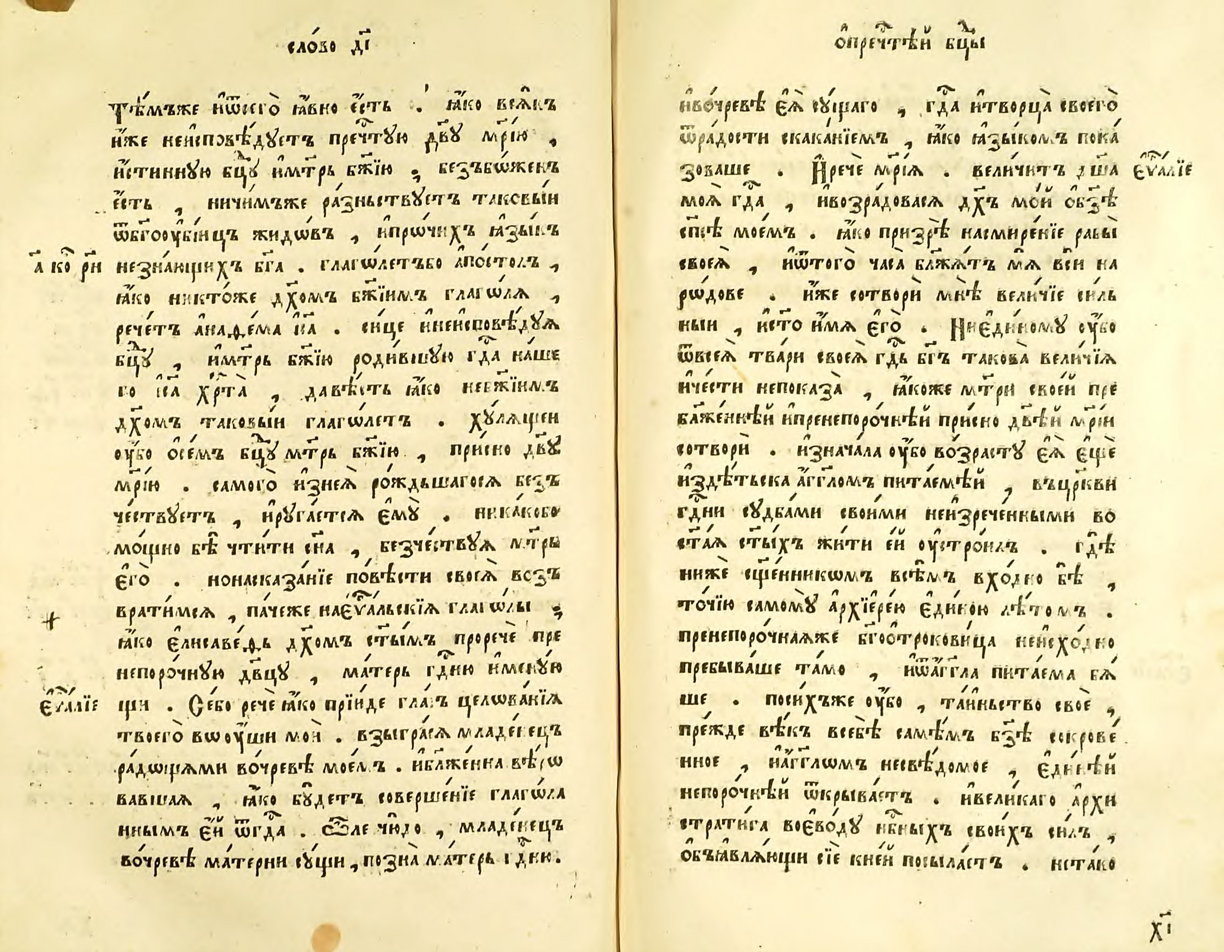 сло́во д҃і
Тѣ́мъже и҆ѿсего̀ ꙗ҆́вно є҆́сть . ꙗ҆́ко всѧ́къ
и҆́же неи҆сповѣ́дуетъ пречⷭ҇тую дв҃у мр҃і́ю ,
и҆́стинную бцⷣу и҆мт҃рь бж҃їю , безъбо́женъ
є҆́сть , ничи́мъже ра́зньствуетъ таковы́и
ѿбг҃оѹ҆бі́иць жидо́въ , и҆про́чихъ ꙗ҆зы́къ
а҃ ко рⷩ҇и
незна́ющихъ бг҃а . глаго́летъбо а҆по́столъ ,
ꙗ҆́ко никто́же дх҃омъ бж҃їимъ глаго́лѧ ,
рече́тъ а҆на́ѳема і҆с҃а . си́це и҆неи҆сповѣ́дуѧ
бцⷣу , и҆мт҃рь бж҃їю роди́вшую гдⷭ҇а на́ше
го і҆с҃а хрⷭ҇та̀ , да вѣ́сть ꙗ҆́ко небж҃їимъ
дх҃омъ таковы́и глаго́летъ . ху́лѧщеи
ѹ҆́бо ѻ҆се́мъ бцⷣу мт҃рь бж҃їю , при́сно дв҃у
мр҃і́ю . самого̀ и҆знеѧ̀ ро́ждьшагосѧ безъ
че́ствуетъ , и҆руга́етсѧ є҆мꙋ̀ . ника́кобо
мо́щно бѣ̀ чти́ти сн҃а , безче́ствуѧ мт҃рь
є҆го̀ . нонасказа́нїе по́вѣсти своеѧ̀ возъ
врати́мсѧ , па́чеже наєѵⷢ҇альскїѧ глаго́лы ,
ꙗ҆́ко є҆лисаве́ѳь дх҃омъ ст҃ымъ прорече́ пре
непоро́чную дв҃цу , ма́терь гдⷭ҇ню и҆мену́ю
єѵⷢ҇алїе
щи . Се́бо речѐ ꙗ҆́ко прїи́де гла́съ целова́нїѧ
твоего̀ воѹ҆́ши мои̑ . взыгра́сѧ младе́нецъ
ра́дощами во́чревѣ мое́мъ . и҆блаже́нна вѣ́ро
вавшаѧ , ꙗ҆́ко бу́детъ соверше́нїе глаго́ла
ннымъ є҆́й ѿгдⷭ҇а . ѽле чю́до , младе́нецъ
во́чревѣ ма́терни су́щи , позна̀ ма́терь гдⷭ҇ню .
ѻ҆пречⷭ҇тѣй бцⷣы
и҆во́чревѣ є҆ѧ̀ су́щаго , гдⷭ҇а и҆творца̀ своего̀
ѿра́дости скака́нїемъ , ꙗ҆́ко ꙗ҆зы́комъ пока́
зоваше . И҆речѐ мр҃і́ѧ . велича́итъ дш҃а
єѵⷢ҇алїе
моѧ̀ гдⷭ҇а , и҆возра́довасѧ дх҃ъ мо́й ѻ҆бз҃ѣ
сп҃сѣ мое́мъ . ꙗ҆́ко призрѣ̀ насмире́нїе рабы̀
своеѧ̀ , и҆ѿто́го часа̀ блаⷤ҇а́тъ мѧ̀ всѝ на
ро́дове . и҆́же сотворѝ мнѣ̀ вели́чїе си́ль
ныи , и҆ст҃о и҆́мѧ є҆го̀ . Ниє҆ди́ному ѹ҆́бо
ѿвсеѧ̀ тва́ри своеѧ̀ гдⷭ҇ь бг҃ъ такова̀ вели́чїѧ
и҆че́сти непоказа̀ , ꙗ҆́коже мт҃ри свое́й пре
блаже́ннѣй и҆пренепоро́чнѣй при́сно дв҃ѣй мр҃і́и
сотворѝ . и҆знача́ла ѹ҆́бо во́зрасту є҆ѧ̀ є҆щѐ
и҆здѣ́тьска а҆́гг҃ломъ пита́емѣй , въцр҃кви
гдⷭ҇ни судба́ми свои́ми неи҆зрече́нными во
ст҃аѧ ст҃ы́хъ жи́ти є҆́й ѹ҆стро́илъ . гдѣ̀
ни́же сщ҃е́нникомъ всѣ́мъ вхо́дно бѣ̀ ,
то́чїю самому̀ а҆рхїере́ю є҆ди́ною лѣ́томъ .
пренепоро́чнаѧже бг҃оотрокови́ца неи҆схо́дно
пребыва́ше та́мо , и҆ѿа҆́гг҃ла пита́ема бѧ́
ше . поси́хъже ѹ҆́бо , та́иньство своѐ ,
пре́жде вѣ́къ всебѣ̀ само́мъ бз҃ѣ сокрове́
нное , и҆а҆́гг҃ломъ несвѣ́домое , є҆ди́нѣй
непоро́чнѣй ѿкрыва́етъ . и҆вели́каго а҆рхи
страти́га воєво́ду нб҃ныхъ свои́хъ си́лъ ,
ѻ҆бъꙗвлѧ́ющи сїѐ кне́й посыла́етъ . и҆ста́ко
х҃і